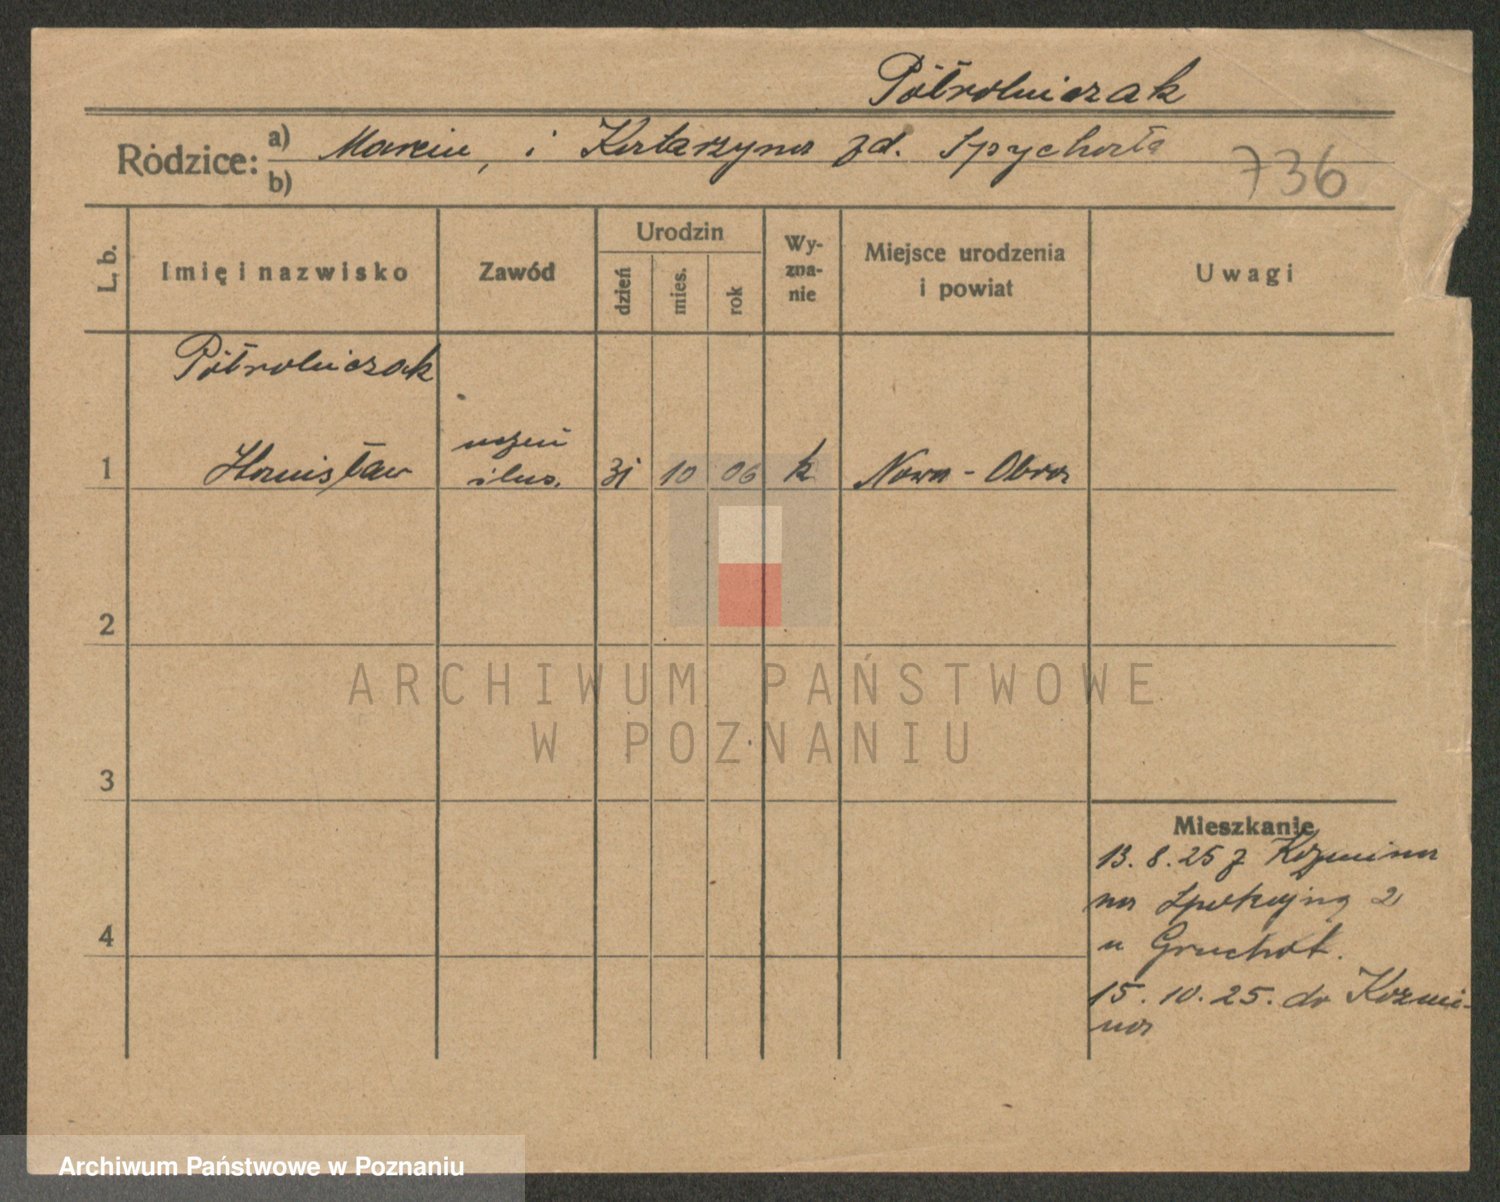 Półrolniczak
Rodzice: a) Marcin, i Katarzyna zd. Spychała
b)
736
L. b.
Imię i nazwisko
Zawód
Urodzin
dzień
mies.
rok
Wy-
zna-
nie
Miejsce urodzenia
i powiat
Uwagi
Półrolniczak
1 Stanisław
uczeń
ślus.
31 10 06 k Nowa - Obra
2
3
4
Mieszkanie
13.8.25 z Kozmina
na Spokojną 2
u Gruchot.
15.10.25. do Kozmi-
na
ARCHIWUM PAŃSTWOWE
W POZNANIU
Archiwum Państwowe w Poznaniu